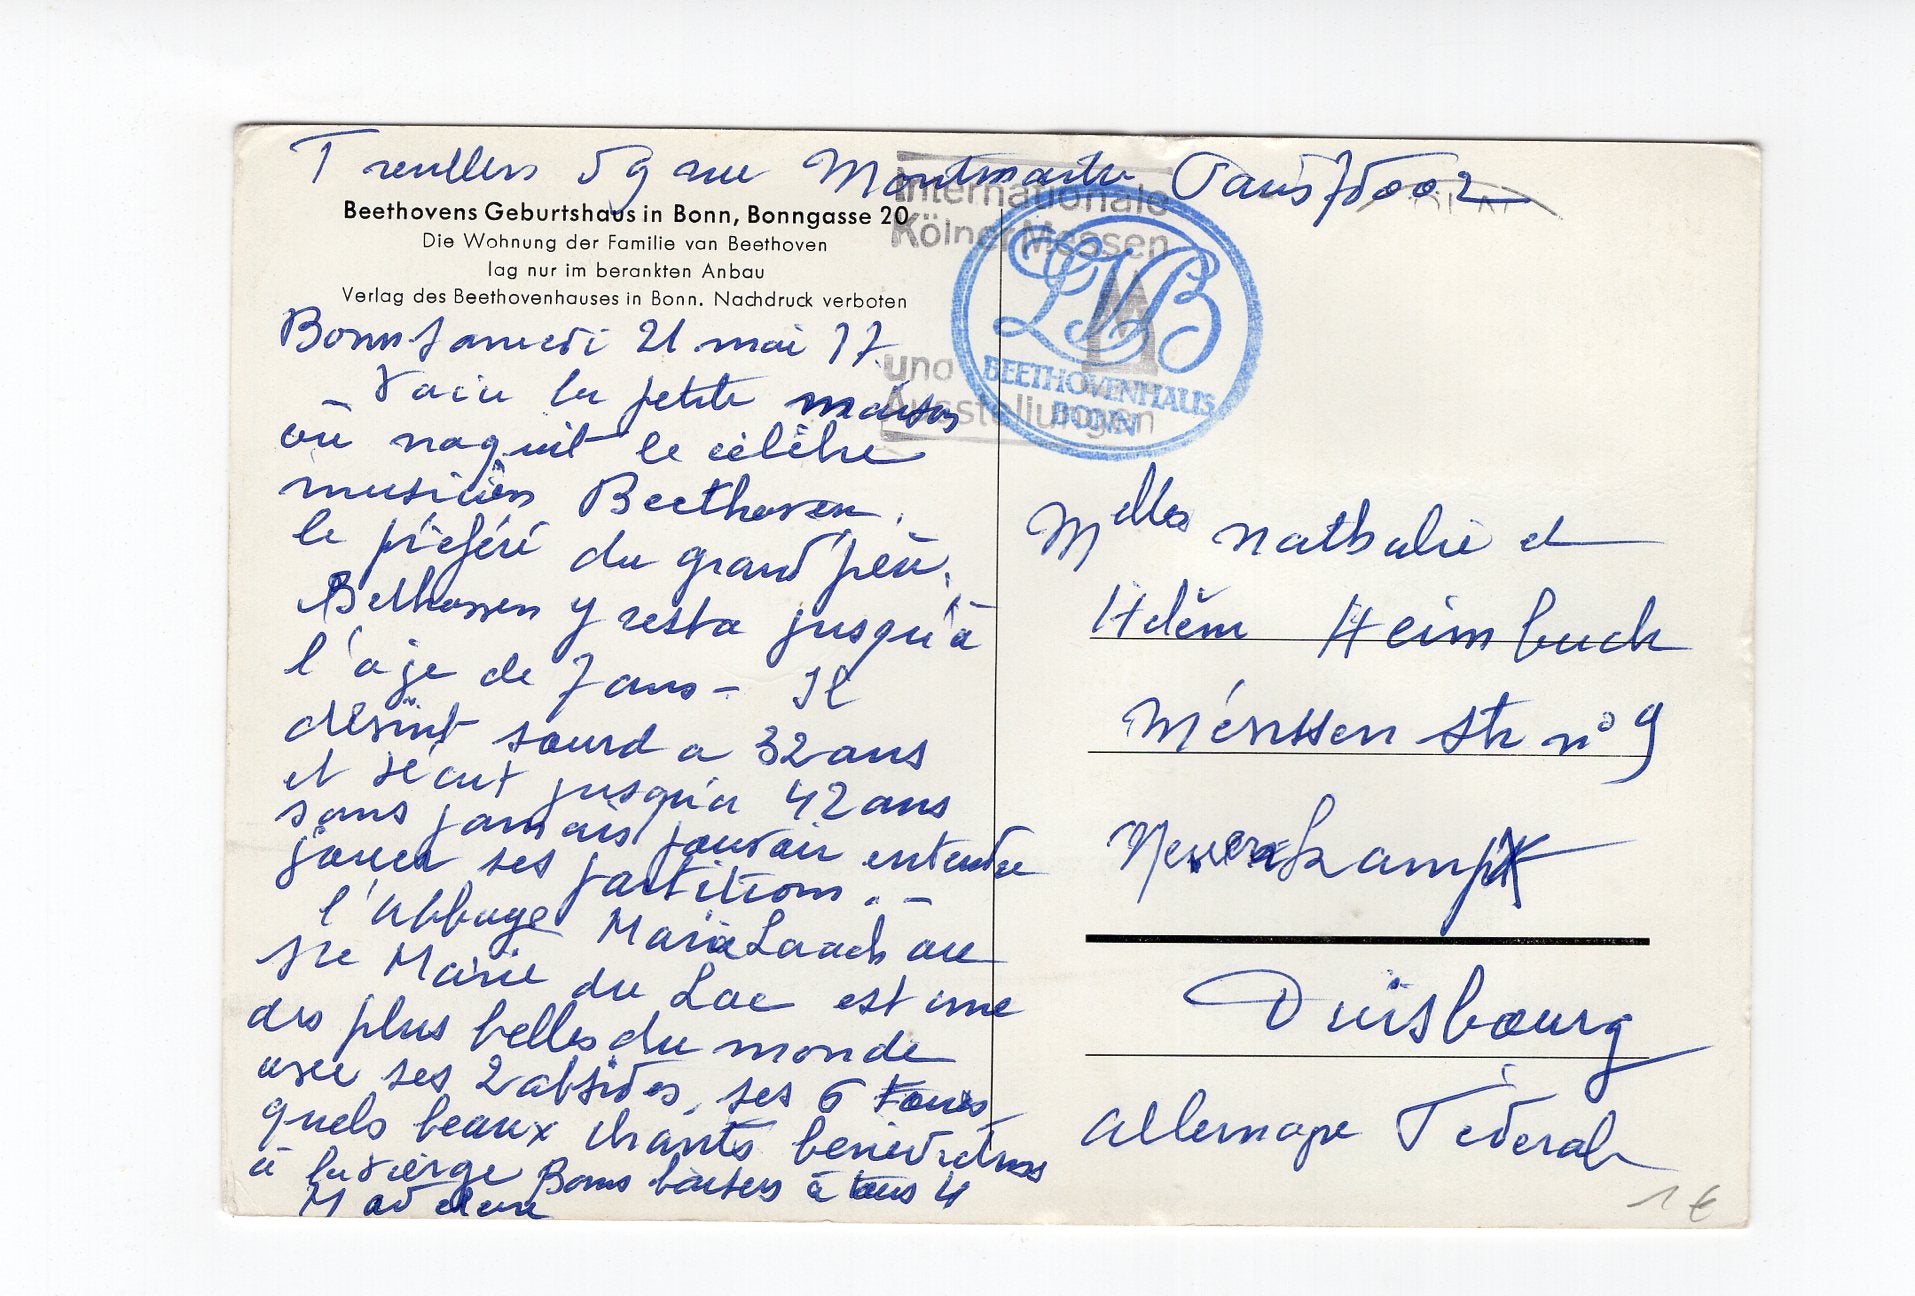 Treullers 59 rue Montmartre Paris 75002
Beethovens Geburtshaus in Bonn, Bonngasse 20
Die Wohnung der Familie van Beethoven
lag nur im berankten Anbau
Verlag des Beethovenhauses in Bonn. Nachdruck verboten
Internationale
Kölner Messen
und
Ausstellungen
LVB
BEETHOVENHAUS
BONN
Bonn Samedi 21 mai 77
Voici la petite maison
où naquit le célèbre
musicien Beethoven.
le préféré du grand'père.
Bethoven y resta jusqu'à
l'âge de 7 ans - Il
devint sourd a 32 ans
et vécut jusqu'a 42 ans
sans jamais pouvoir entendre
jouer ses partitions. -
l'Abbaye Maria Laach ou
Ste Marie du Lac est une
des plus belles du monde
avec ses 2 absides, ses 6 tours
quels beaux chants bénédictins
à la vierge Bons baisers à tous 4
Madeleine
Melles Nathalie et
Hélène Heimbuch
Str n° 9
Duisbourg
Allemagne Féderale
1 €